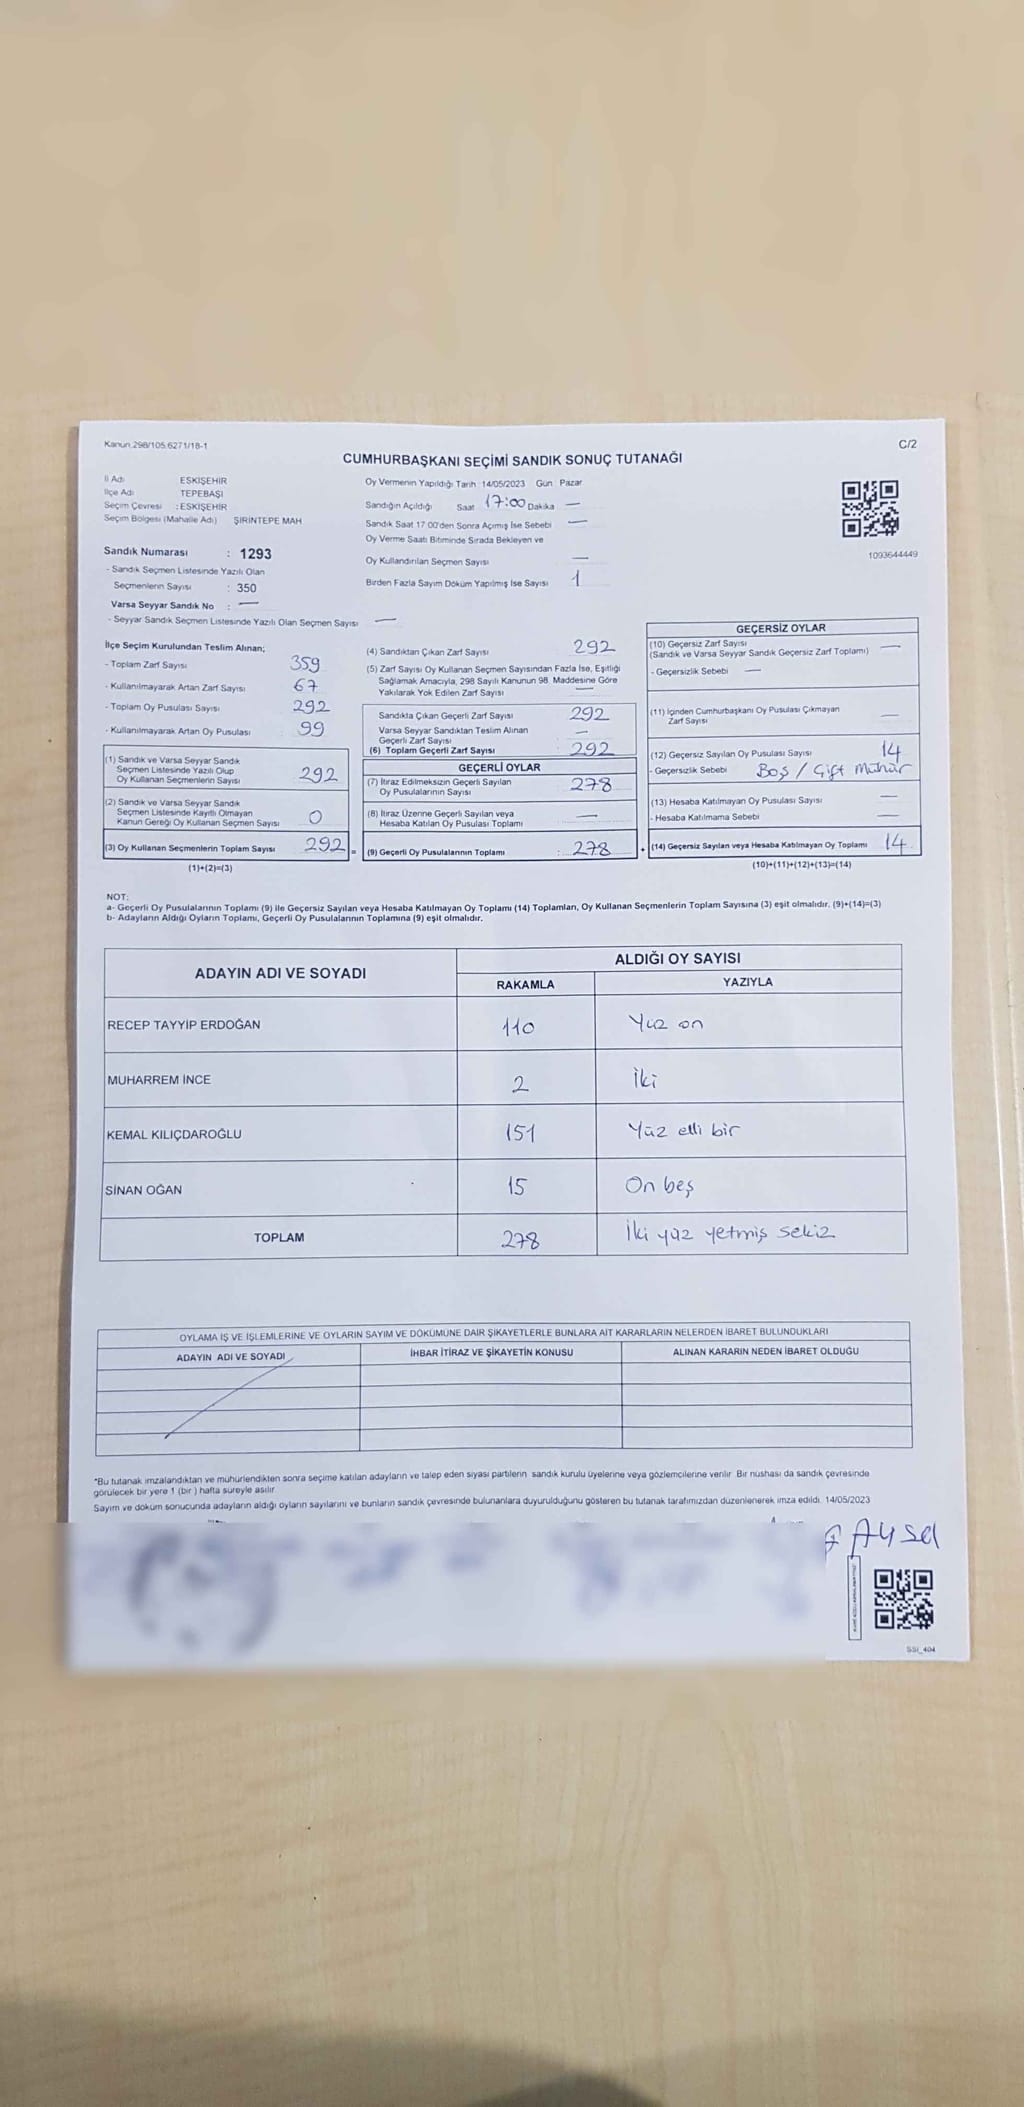 Kanun 298/105 6271/18-1
C/2
CUMHURBAŞKANI SEÇİMİ SANDIK SONUÇ TUTANAĞI
İl Adı ESKİŞEHİR
İlçe Adı TEPEBAŞI
Seçim Çevresi : ESKİŞEHİR
Seçim Bölgesi (Mahalle Adı) ŞİRİNTEPE MAH
Sandık Numarası : 1293
- Sandık Seçmen Listesinde Yazılı Olan
Seçmenlerin Sayısı : 350
Varsa Seyyar Sandık No : —
- Seyyar Sandık Seçmen Listesinde Yazılı Olan Seçmen Sayısı —
Oy Vermenin Yapıldığı Tarih 14/05/2023 Gün : Pazar
Sandığın Açıldığı Saat 17:00 Dakika —
Sandık Saat 17 00'den Sonra Açımış İse Sebebi —
Oy Verme Saati Bitiminde Sırada Bekleyen ve
Oy Kullandırılan Seçmen Sayısı —
Birden Fazla Sayım Döküm Yapılmış İse Sayısı 1
1093644449
İlçe Seçim Kurulundan Teslim Alınan;
- Toplam Zarf Sayısı 359
- Kullanılmayarak Artan Zarf Sayısı 67
- Toplam Oy Pusulası Sayısı 292
- Kullanılmayarak Artan Oy Pusulası 99
(1) Sandık ve Varsa Seyyar Sandık
Seçmen Listesinde Yazılı Olup
Oy Kullanan Seçmenlerin Sayısı 292
(2) Sandık ve Varsa Seyyar Sandık
Seçmen Listesinde Kayıtlı Olmayan
Kanun Gereği Oy Kullanan Seçmen Sayısı 0
(3) Oy Kullanan Seçmenlerin Toplam Sayısı 292 =
(1)+(2)=(3)
(4) Sandıktan Çıkan Zarf Sayısı 292
(5) Zarf Sayısı Oy Kullanan Seçmen Sayısından Fazla İse, Eşitliği
Sağlamak Amacıyla, 298 Sayılı Kanunun 98. Maddesine Göre
Yakılarak Yok Edilen Zarf Sayısı —
Sandıkta Çıkan Geçerli Zarf Sayısı 292
Varsa Seyyar Sandıktan Teslim Alınan
Geçerli Zarf Sayısı —
(6) Toplam Geçerli Zarf Sayısı 292
GEÇERLİ OYLAR
(7) İtiraz Edilmeksizin Geçerli Sayılan
Oy Pusulalarının Sayısı 278
(8) İtiraz Üzerine Geçerli Sayılan veya
Hesaba Katılan Oy Pusulası Toplamı —
(9) Geçerli Oy Pusulalarının Toplamı : 278 +
GEÇERSİZ OYLAR
(10) Geçersiz Zarf Sayısı
(Sandık ve Varsa Seyyar Sandık Geçersiz Zarf Toplamı) —
- Geçersizlik Sebebi —
(11) İçinden Cumhurbaşkanı Oy Pusulası Çıkmayan
Zarf Sayısı —
(12) Geçersiz Sayılan Oy Pusulası Sayısı 14
- Geçersizlik Sebebi Boş / Çift Mühür
(13) Hesaba Katılmayan Oy Pusulası Sayısı —
- Hesaba Katılmama Sebebi —
(14) Geçersiz Sayılan veya Hesaba Katılmayan Oy Toplamı 14
(10)+(11)+(12)+(13)=(14)
NOT:
a- Geçerli Oy Pusulalarının Toplamı (9) ile Geçersiz Sayılan veya Hesaba Katılmayan Oy Toplamı (14) Toplamları, Oy Kullanan Seçmenlerin Toplam Sayısına (3) eşit olmalıdır. (9)+(14)=(3)
b- Adayların Aldığı Oyların Toplamı, Geçerli Oy Pusulalarının Toplamına (9) eşit olmalıdır.
ADAYIN ADI VE SOYADI
ALDIĞI OY SAYISI
RAKAMLA YAZIYLA
RECEP TAYYİP ERDOĞAN 110 Yüz on
MUHARREM İNCE 2 İki
KEMAL KILIÇDAROĞLU 151 Yüz elli bir
SİNAN OĞAN 15 On beş
TOPLAM 278 İki yüz yetmiş sekiz
OYLAMA İŞ VE İŞLEMLERİNE VE OYLARIN SAYIM VE DÖKÜMÜNE DAİR ŞİKAYETLERLE BUNLARA AİT KARARLARIN NELERDEN İBARET BULUNDUKLARI
ADAYIN ADI VE SOYADI İHBAR İTİRAZ VE ŞİKAYETİN KONUSU ALINAN KARARIN NEDEN İBARET OLDUĞU
*Bu tutanak imzalandıktan ve mühürlendikten sonra seçime katılan adayların ve talep eden siyasi partilerin sandık kurulu üyelerine veya gözlemcilerine verilir. Bir nüshası da sandık çevresinde
görülecek bir yere 1 (bir ) hafta süreyle asılır.
Sayım ve döküm sonucunda adayların aldığı oyların sayılarını ve bunların sandık çevresinde bulunanlara duyurulduğunu gösteren bu tutanak tarafımızdan düzenlenerek imza edildi. 14/05/2023
Aysel
SSİ_404